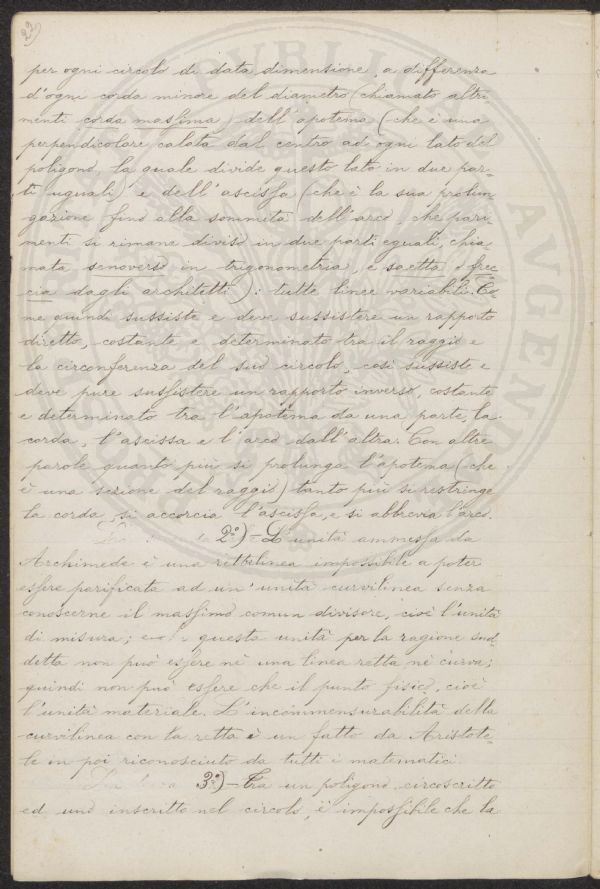 23)
per ogni circolo di data dimensione, a differenza
d'ogni corda minore del diametro (chiamato altri-
menti corda massima) dell'apotema (che è una
perpendicolare calata dal centro ad ogni lato del
poligono, la quale divide questo lato in due par-
ti uguali) e dell'ascissa (che è la sua prolun-
gazione fino alla sommità dell'arco, che pari-
menti si rimane diviso in due parti eguali, chia-
mata senoverso in trigonometria, e saetta o frec-
cia dagli architetti): tutte linee variabili. Co-
me quindi sussiste e deve sussistere un rapporto
diretto, costante e determinato tra il raggio e
la circonferenza del suo circolo, così sussiste e
deve pure sussistere un rapporto inverso, costante
e determinato tra l'apotema da una parte, la
corda, l'ascissa e l'arco dall'altra. Con altre
parole quanto più si prolunga l'apotema (che
è una sezione del raggio) tanto più si restringe
la corda, si accorcia l'ascissa, e si abbrevia l'arco.
2.°) - L'unità ammessa da
Archimede è una rettilinea impossibile a poter
essere parificata ad un'unità curvilinea senza
conoscerne il massimo comun divisore, cioè l'unità
di misura; questa unità per la ragione sud-
detta non può essere nè una linea retta nè curva;
quindi non può essere che il punto fisico, cioè
l'unità materiale. L'incommensurabilità della
curvilinea con la retta è un fatto da Aristote-
le in poi riconosciuto da tutti i matematici.
3.°) - Tra un poligono circoscritto
ed uno inscritto nel circolo, è impossibile che la